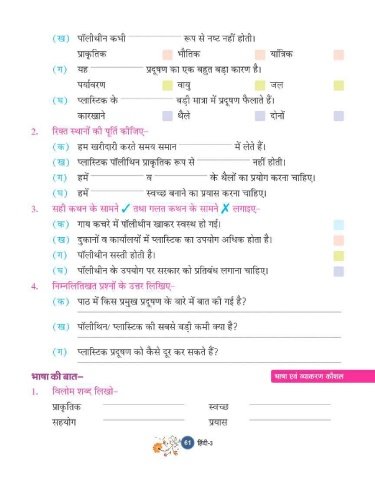 (ख) पॉलीथीन कभी ____________ रूप से नष्ट नहीं होती।
प्राकृतिक भौतिक यांत्रिक
(ग) यह ____________ प्रदूषण का एक बहुत बड़ा कारण है।
पर्यावरण वायु जल
(घ) प्लास्टिक के ____________ बड़ी मात्रा में प्रदूषण फैलाते हैं।
कारखाने थैले दोनों
2. रिक्त स्थानों की पूर्ति कीजिए–
(क) हम खरीदारी करते समय समान ____________ में लेते हैं।
(ख) प्लास्टिक पॉलिथीन प्राकृतिक रूप से ____________ नहीं होती।
(ग) हमें ____________ व ____________ के थैलों का प्रयोग करना चाहिए।
(घ) हमें ____________ स्वच्छ बनाने का प्रयास करना चाहिए।
3. सही कथन के सामने ✓ तथा गलत कथन के सामने ✗ लगाइए–
(क) गाय कचरे में पॉलीथीन खाकर स्वस्थ हो गई।
(ख) दुकानों व कार्यालयों में प्लास्टिक का उपयोग अधिक होता है।
(ग) पॉलीथीन सस्ती होती है।
(घ) पॉलीथीन के उपयोग पर सरकार को प्रतिबंध लगाना चाहिए।
4. निम्नलिखित प्रश्नों के उत्तर लिखिए–
(क) पाठ में किस प्रमुख प्रदूषण के बारे में बात की गई है?
(ख) पॉलीथिन/ प्लास्टिक की सबसे बड़ी कमी क्या है?
(ग) प्लास्टिक प्रदूषण को कैसे दूर कर सकते हैं?
भाषा की बात– भाषा एवं व्याकरण कौशल
1. विलोम शब्द लिखो–
प्राकृतिक ____________ स्वच्छ ____________
सहयोग ____________ प्रयास ____________
61 हिंदी-3